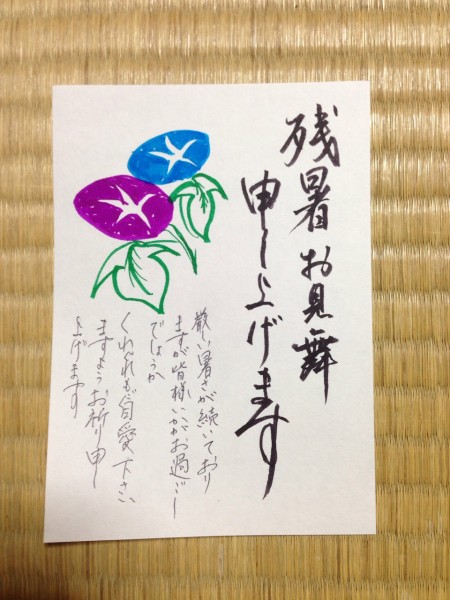 残暑お見舞
申し上げます
厳しい暑さが続いており
ますが皆様いかがお過ごし
でしょうか
くれぐれもご自愛下さい
ますようお祈り申し
上げます